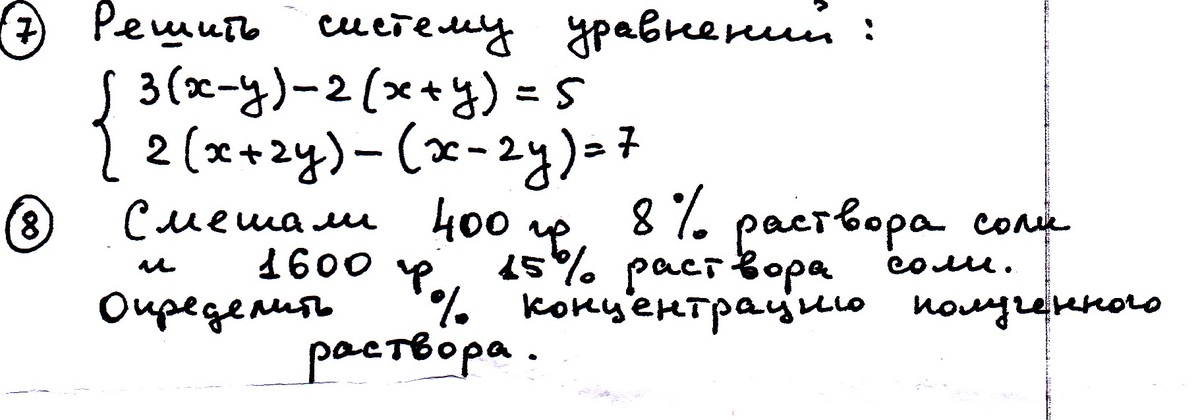 7 Решить систему уравнений:
3(x-y)-2(x+y)=5
2(x+2y)-(x-2y)=7
8 Смешали 400 гр 8% раствора соли
и 1600 гр 15% раствора соли.
Определить % концентрацию полученного
раствора.